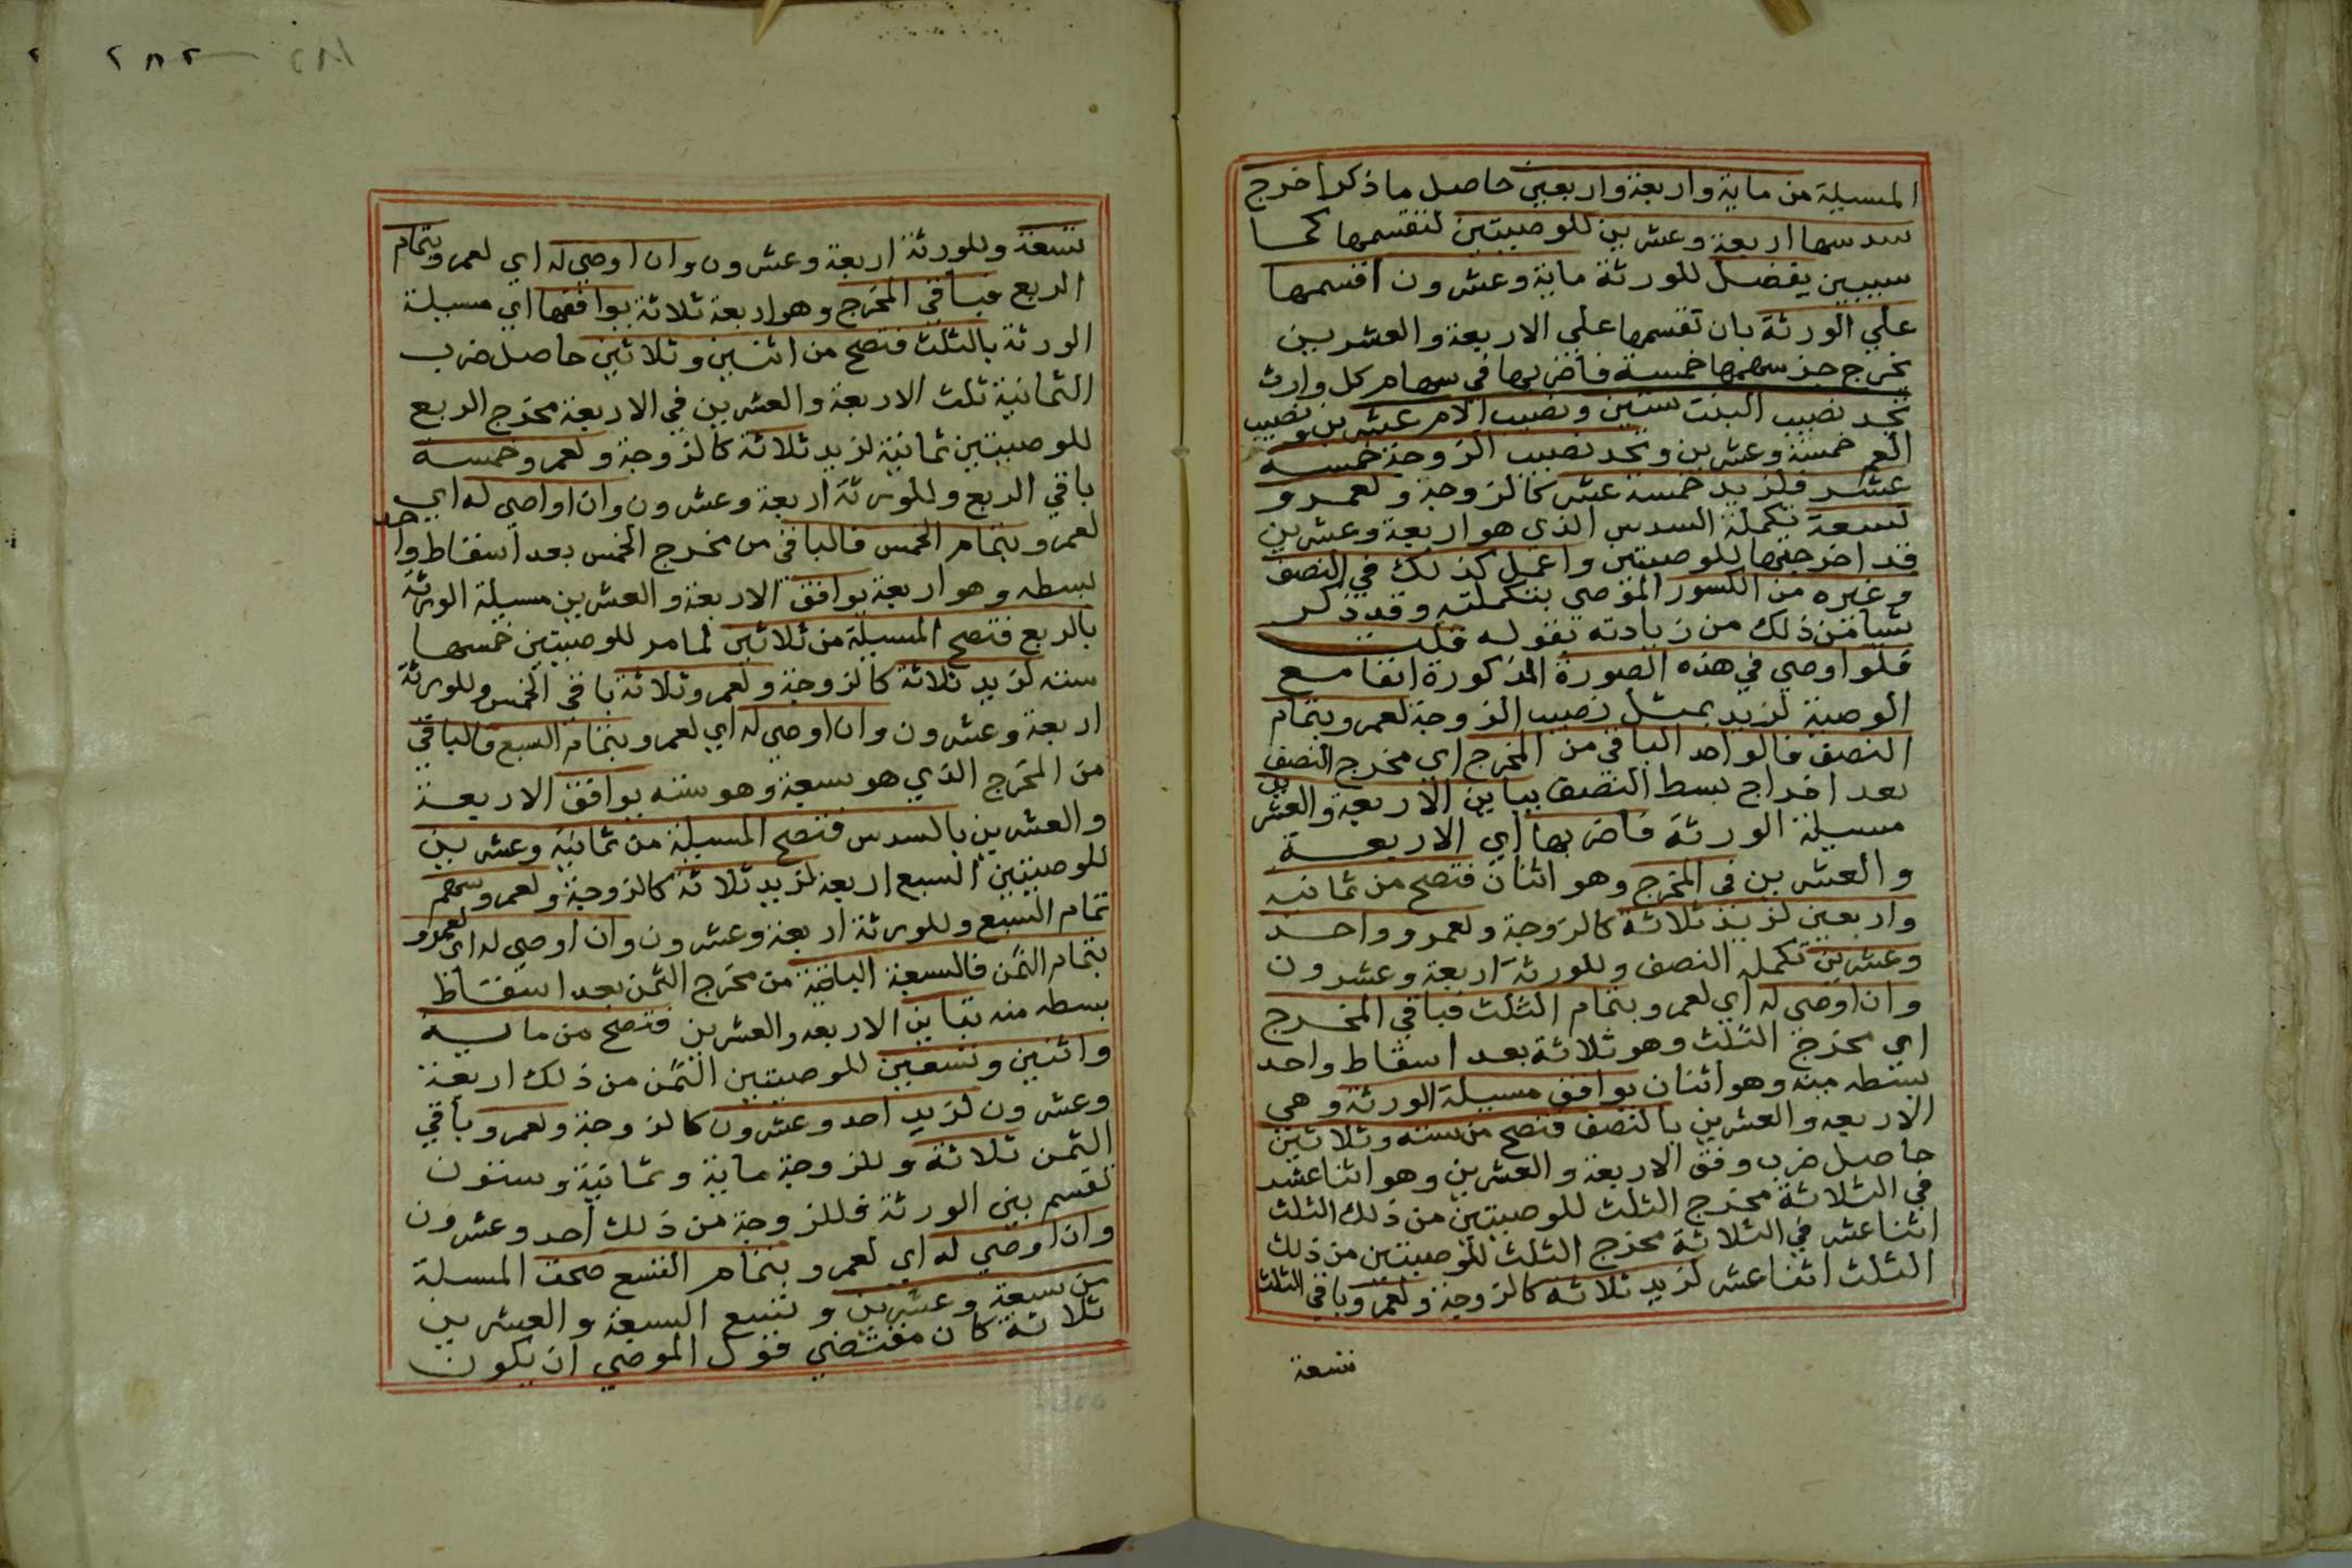 المسيلة من ماية واربعة واربعين حاصل ما ذكر اخرج
سدسها اربعة وعشرين للوصيتين لتقسمها كما
سيبين يفضل للورثة ماية وعشرون اقسمها
علي الورثة بان تقسمها على الاربعة والعشرين
يخرج جز سهمها خمسة فاضربها في سهام كل وارث
تجد نصيب البنت ستين ونصيب الام عشرين ونصيب
العم خمسة وعشرين وتجد نصيب الزوجة خمسة
عشر فلزيد خمسة عشر كالزوجة ولعمرو
تسعة تكملة السدس الذي هو اربعة وعشرين
قد اخرجتها للوصيتين واعمل كذلك في النصف
وغيره من الكسور الموصي بتكملته وقد ذكر
شيا من ذلك من زيادته بقوله قلت
فلو اوصي في هذه الصورة المذكورة انفا مع
الوصية لزيد بمثل نصيب الزوجة لعمرو بتمام
النصف فالواحد الباقي من المخرج اي مخرج النصف
بعد اخراج بسط النصف يباين الاربعة والعشرين
مسيلة الورثة فاضربها اي الاربعة
والعشرين في المخرج وهو اثنان فتصح من ثمانية
واربعين لزيد ثلاثة كالزوجة ولعمرو واحد
وعشرين تكملة النصف وللورثة اربعة وعشرون
وان اوصي له اي لعمرو بتمام الثلث فباقي المخرج
اي مخرج الثلث وهو ثلاثة بعد اسقاط واحد
بسطه منه وهو اثنان يوافق مسيلة الورثة وهي
الاربعه والعشرين بالنصف فتصح من سته وثلاثين
حاصل ضرب وفق الاربعة والعشرين وهو اثنا عشر
في الثلاثة مخرج الثلث للوصيتين من ذلك الثلث
اثنا عشر في الثلاثة مخرج الثلث للوصيتين من ذلك
الثلث اثنا عشر لزيد ثلاثه كالزوجة ولعمرو باقي الثلث
تسعة
تسعة وللورثة اربعة وعشرون وان اوصي له اي لعمرو بتمام
الربع فباقي المخرج وهو اربعة ثلاثة يوافقها اي مسيلة
الورثة بالثلث فتصح من اثنين وثلاثين حاصل ضرب
الثمانية ثلث الاربعة والعشرين في الاربعة مخرج الربع
للوصيتين ثمانية لزيد ثلاثة كالزوجة ولعمرو خمسة
باقي الربع وللورثة اربعة وعشرون وان اواصي له اي
لعمرو بتمام الخمس فالباقي من مخرج الخمس بعد اسقاط واحد
بسطه وهو اربعة يوافق الاربعة والعشرين مسيلة الورثة
بالربع فتصح المسيلة من ثلاثين لما مر للوصيتين خمسها
سته لزيد ثلاثة كالزوجة ولعمرو ثلاثة باقي الخمس وللورثة
اربعة وعشرون وان اوصي له اي لعمرو بتمام السبع فالباقي
من المخرج الذي هو سبعة وهو سته يوافق الاربعة
والعشرين بالسدس فتصح المسيلة من ثمانية وعشرين
للوصيتين السبع اربعة لزيد ثلاثة كالزوجة ولعمرو سهم
تمام السبع وللورثة اربعة وعشرون وان اوصي له اي لعمرو
بتمام الثمن فالسبعة الباقية من مخرج الثمن بعد اسقاط
بسطه منه تباين الاربعه والعشرين فتصح من ماية
واثنين وتسعين للوصيتين الثمن من ذلك اربعة
وعشرون لزيد احد وعشرون كالزوجة ولعمرو باقي
الثمن ثلاثة وللزوجة ماية وثمانية وستون
تقسم بين الورثة فللزوجة من ذلك احد وعشرون
وان اوصي له اي لعمرو بتمام التسع صحت المسلة
من سبعة وعشرين و تسع السبعة والعشرين
ثلاثة كان مقتضي قول الموصي ان يكون